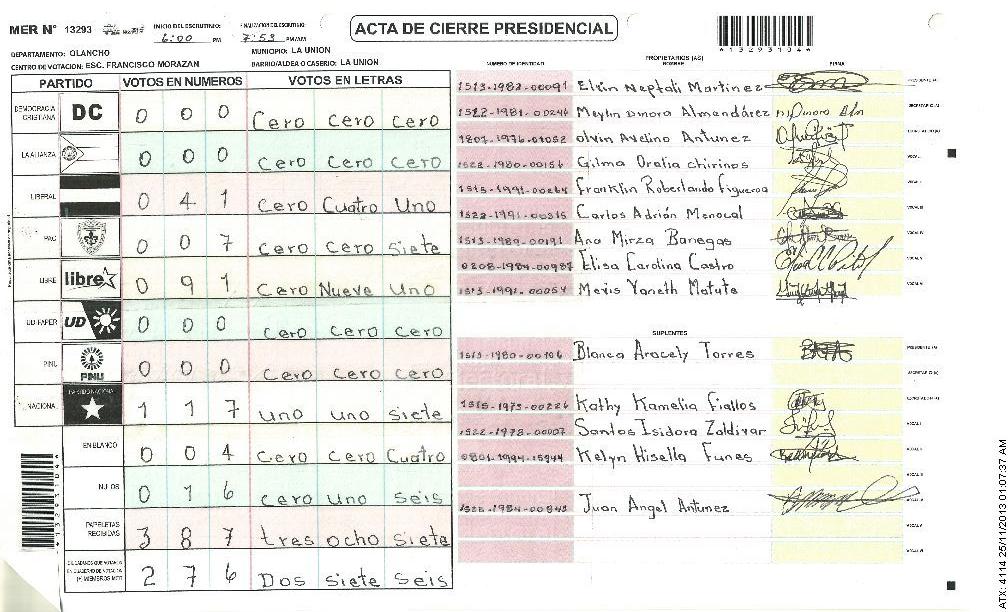 MER N° 13293
INICIO DEL ESCRUTINIO: 6:00 PM
FINALIZACION DEL ESCRUTINIO: 7:53 PM/AM
ACTA DE CIERRE PRESIDENCIAL
DEPARTAMENTO: OLANCHO
MUNICIPIO: LA UNION
CENTRO DE VOTACION: ESC. FRANCISCO MORAZAN
BARRIO/ALDEA O CASERIO: LA UNION
PARTIDO VOTOS EN NUMEROS VOTOS EN LETRAS
DEMOCRACIA CRISTIANA DC 0 0 0 Cero Cero Cero
LA ALIANZA 0 0 0 Cero Cero Cero
LIBERAL 0 4 1 Cero Cuatro Uno
PAC 0 0 7 Cero Cero Siete
LIBRE libre 0 9 1 Cero Nueve Uno
UD-FAPER UD 0 0 0 Cero Cero Cero
PINU PINU 0 0 0 Cero Cero Cero
NACIONAL PARTIDO NACIONAL 1 1 7 Uno Uno Siete
EN BLANCO 0 0 4 Cero Cero Cuatro
NULOS 0 1 6 Cero Uno Seis
PAPELETAS RECIBIDAS 3 8 7 tres ocho siete
2 7 6 Dos Siete Seis
PROPIETARIOS (AS)
NUMERO DE IDENTIDAD NOMBRE FIRMA
1513-1982-00091 Elvin Neptali Martinez PRESIDENTE (A)
1522-1981-00246 Meylin Dinora Almendárez SECRETARIO (A)
1807-1976-01052 olvin Avelino Antunez
1522-1980-00156 Gilma Oralia chirinos VOCAL I
1515-1991-00264 Franklin Roberlando Figueroa
1522-1991-00315 Carlos Adrián Menocal
1513-1989-00191 Ana Mirza Banegas
0208-1984-00987 Elisa Carolina Castro
1513-1991-00054 Mexis Yaneth Matute
SUPLENTES
1513-1980-00106 Blanca Aracely Torres PRESIDENTE (A)
SECRETARIO (A)
1515-1973-00226 Kathy Kamelia Fiallos
1522-1978-00007 Santos Isidora Zaldivar
0801-1994-15944 Kelyn Hisella Funes
1522-1984-00343 Juan Angel Antunez
ATX: 4114 25/11/2013 01:07:37 AM